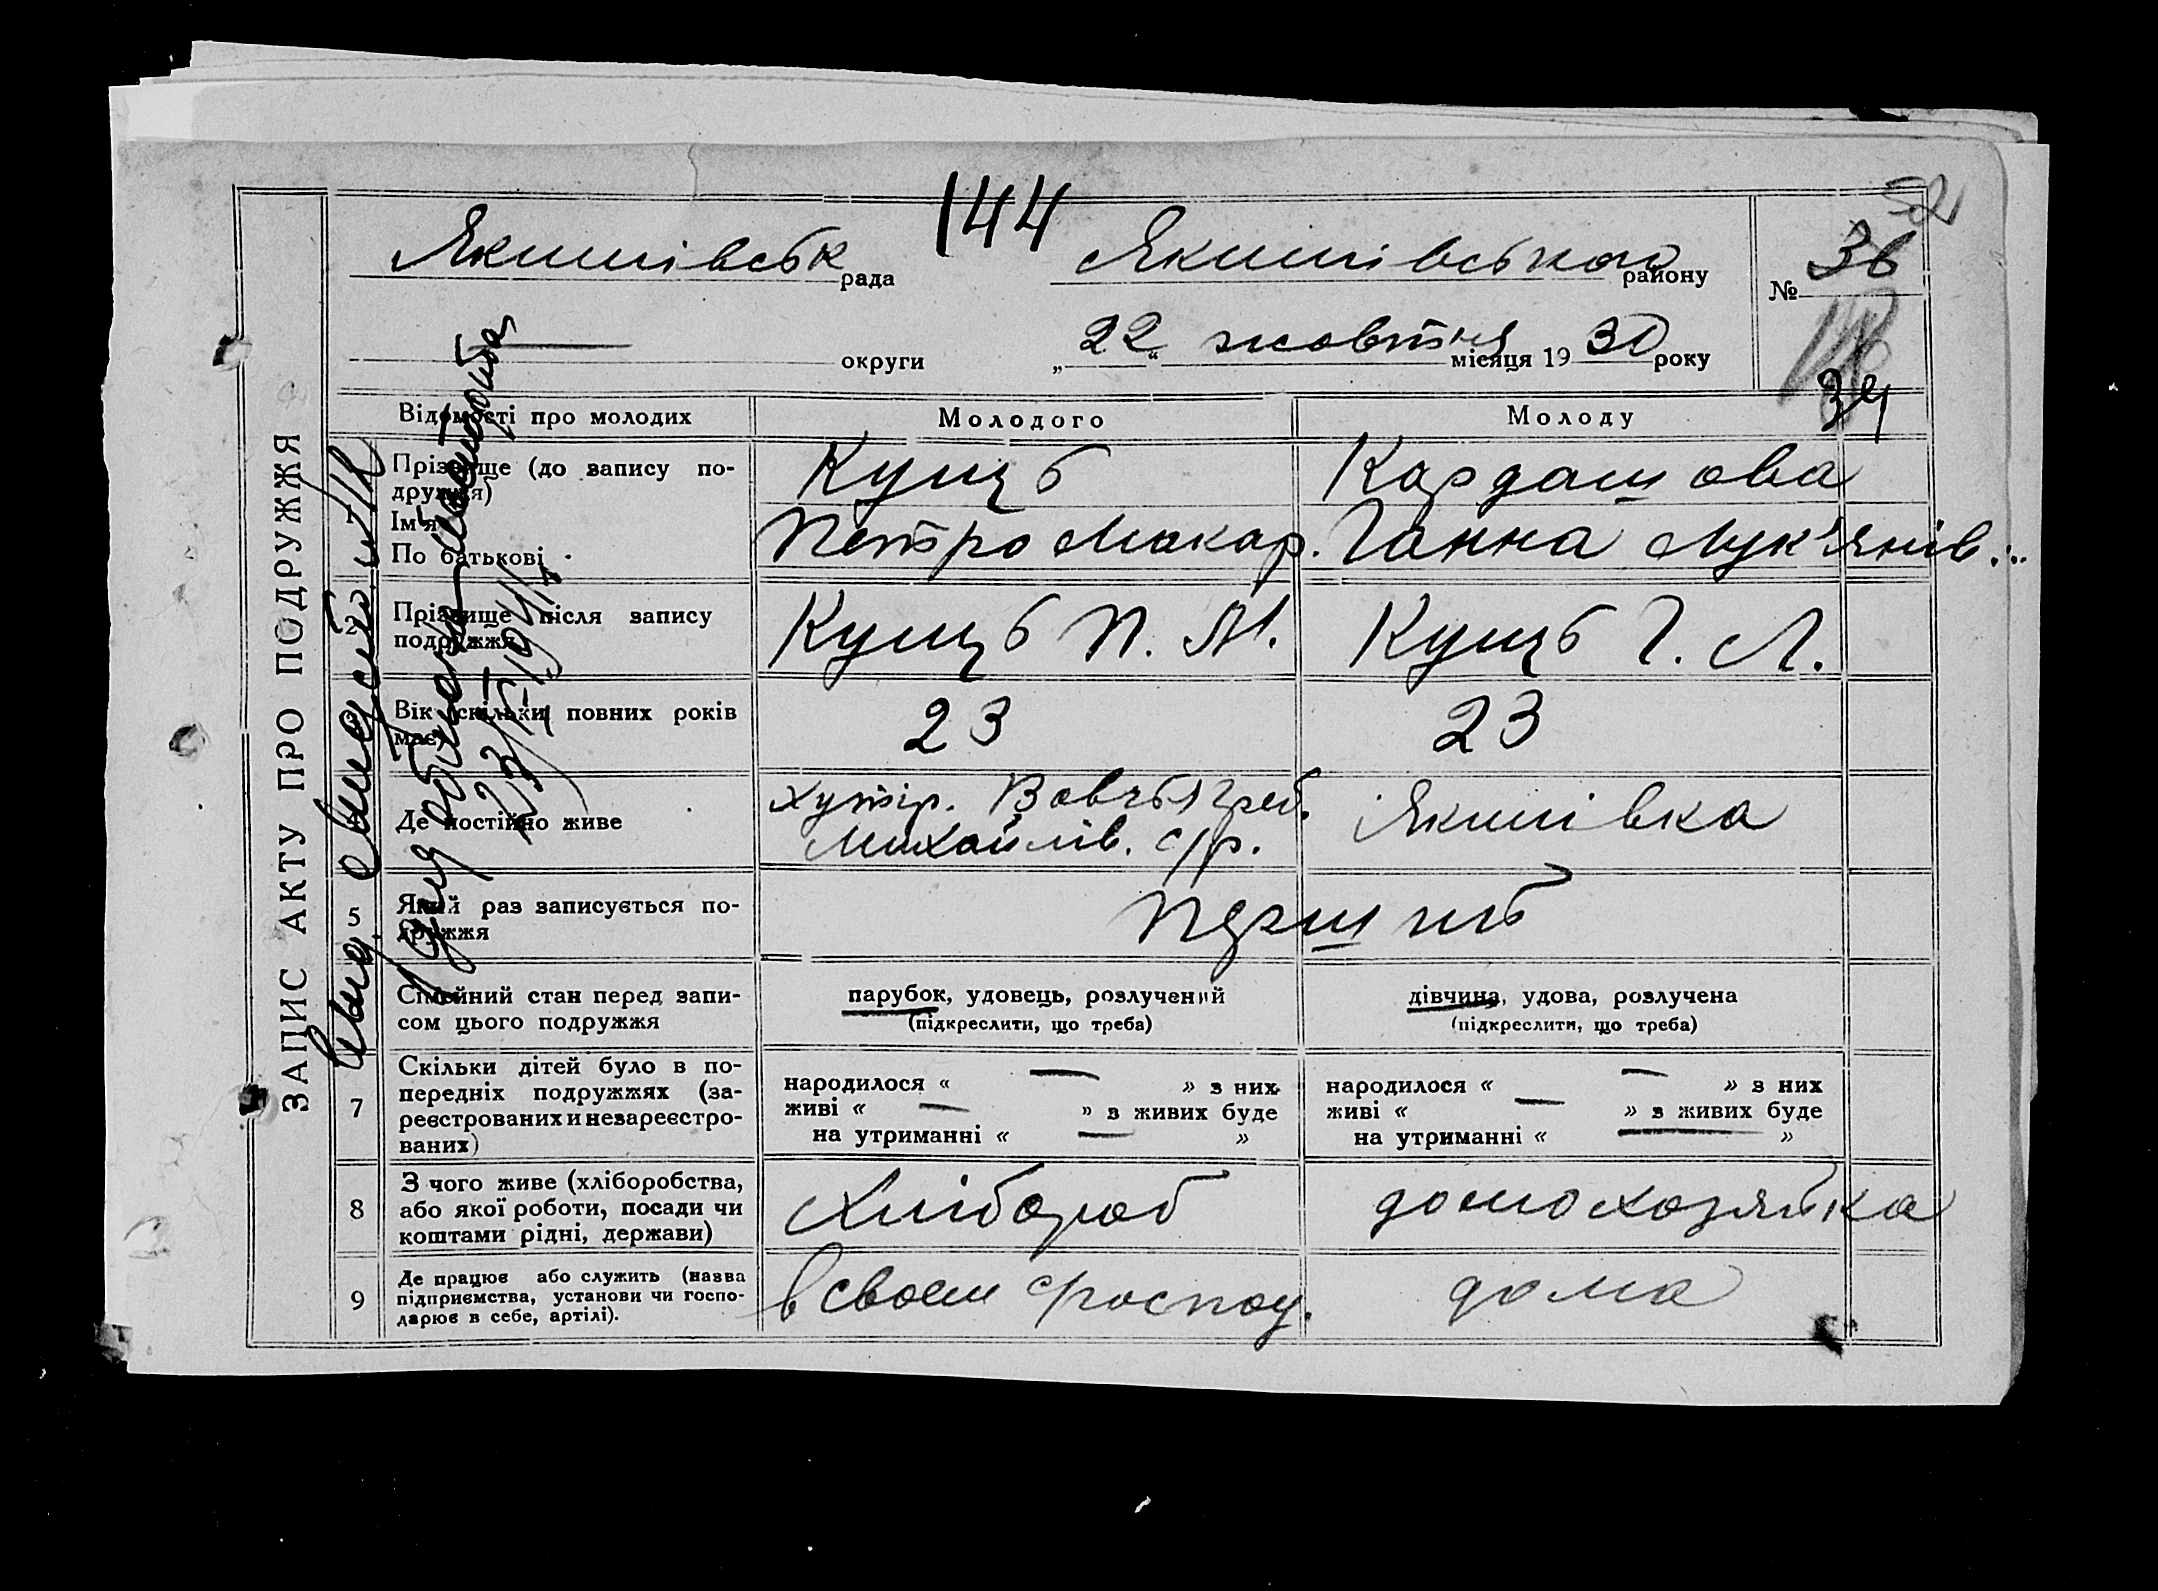 144
52
Якимівськ рада
Якимівського району
№ 36
округи
„22“ жовтня місяця 1930 року
34
ЗАПИС АКТУ ПРО ПОДРУЖЖЯ
Відомості про молодих
Молодого
Молоду
1
Прізвище (до запису по-
дружжя)
Кущь
Кардашова
Ім'я
По батькові
Петро Макар.
Ганна Лук'янів..
2
Прізвище після запису
подружжя
Кущь П. М.
Кущь Г. Л.
Вік (скільки повних років
має)
23
23
4
Де постійно живе
хутір. Вовчья
Михайлів. с/р.
Якимівка
5
Який раз записується по-
дружжя
Перший
Сімейний стан перед запи-
сом цього подружжя
парубок, удовець, розлучений
(підкреслити, що треба)
дівчина, удова, розлучена
(підкреслити, що треба)
7
Скільки дітей було в по-
передніх подружжях (за-
реєстрованих и незареєстро-
ваних)
народилося « — » з них
живі « — » з живих буде
на утриманні « — »
народилося « — » з них
живі « — » з живих буде
на утриманні « — »
8
З чого живе (хліборобства,
або якої роботи, посади чи
коштами рідні, держави)
Хлібороб
домохозяйка
9
Де працює або служить (назва
підприємства, установи чи госпо-
дарює в себе, артілі).
в своем госпоу.
дома